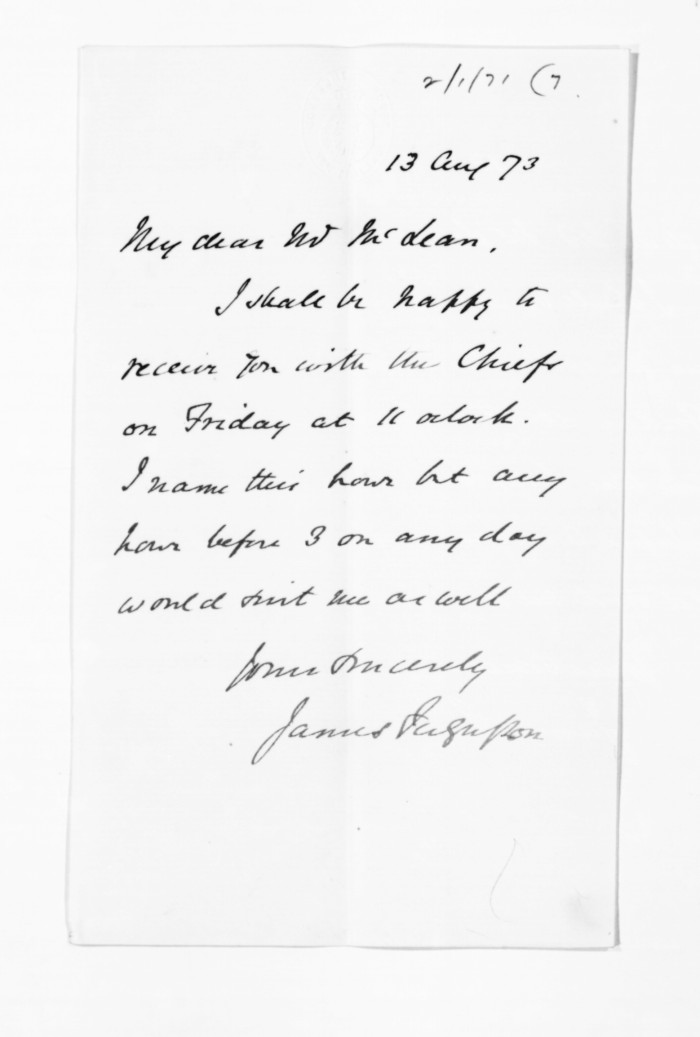 2/1/71 (7.
13 Aug 73
My dear Mr McLean,
I shall be happy to
receive you with the Chiefs
on Friday at 11 oclock.
I name this hour but any
hour before 3 on any day
would suit me as well
Yours sincerely
James Fergusson